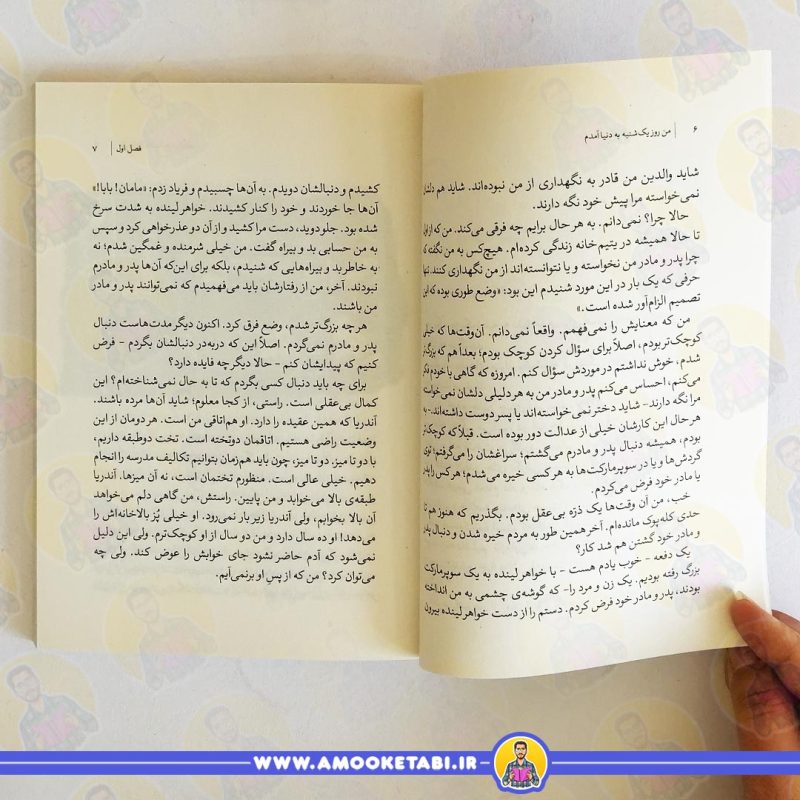 ۶ | من روز یک‌شنبه به دنیا آمدم
شاید والدین من قادر به نگهداری از من نبوده‌اند. شاید هم دلشان
نمی‌خواسته مرا پیش خود نگه دارند.
حالا چرا؟ نمی‌دانم. به هر حال برایم چه فرقی می‌کند. من که از اول
تا حالا همیشه در یتیم‌خانه زندگی کرده‌ام. هیچ‌کس به من نگفته که
چرا پدر و مادر من نخواسته و یا نتوانسته‌اند از من نگهداری کنند. تنها
حرفی که یک بار در این مورد شنیدم این بود: «وضع طوری بوده که این
تصمیم الزام‌آور شده است.»
من که معنایش را نمی‌فهمم. واقعاً نمی‌دانم. آن‌وقت‌ها که خیلی
کوچک‌تر بودم، اصلاً برای سؤال کردن کوچک بودم؛ بعداً هم که بزرگ‌تر
شدم، خوش نداشتم در موردش سؤال کنم. امروزه که گاهی با خودم فکر
می‌کنم، احساس می‌کنم پدر و مادر من به هر دلیلی دلشان نمی‌خواسته
مرا نگه دارند - شاید دختر نمی‌خواسته‌اند یا پسر دوست داشته‌اند. - به
هر حال این کارشان خیلی از عدالت دور بوده است. قبلاً که کوچک‌تر
بودم، همیشه دنبال پدر و مادرم می‌گشتم؛ سراغشان را می‌گرفتم؛ توی
گردش‌ها و یا در سوپرمارکت‌ها به هر کسی خیره می‌شدم؛ هر کس را پدر
یا مادر خود فرض می‌کردم.
خب، من آن وقت‌ها یک ذرّه بی‌عقل بودم. بگذریم که هنوز هم تا
حدی کله‌پوک مانده‌ام. آخر همین طور به مردم خیره شدن و دنبال پدر
و مادر خود گشتن هم شد کار؟
یک دفعه - خوب یادم هست - با خواهر لینده به یک سوپرمارکت
بزرگ رفته بودیم. یک زن و مرد را - که گوشه‌ی چشمی به من انداخته
بودند، پدر و مادر خود فرض کردم. دستم را از دست خواهر لینده بیرون
فصل اول | ۷
کشیدم و دنبالشان دویدم. به آن‌ها چسبیدم و فریاد زدم: «مامان! بابا!»
آن‌ها جا خوردند و خود را کنار کشیدند. خواهر لینده به شدت سرخ
شده بود. جلو دوید، دست مرا کشید و از آن دو عذرخواهی کرد و سپس
به من حسابی بد و بیراه گفت. من خیلی شرمنده و غمگین شدم؛ نه
به خاطر بد و بیراه‌هایی که شنیدم، بلکه برای این‌که آن‌ها پدر و مادرم
نبودند. آخر، من از رفتارشان باید می‌فهمیدم که نمی‌توانند پدر و مادر
من باشند.
هر چه بزرگ‌تر شدم، وضع فرق کرد. اکنون دیگر مدت‌هاست دنبال
پدر و مادرم نمی‌گردم. اصلاً این که دربه‌در دنبالشان بگردم - فرض
کنیم که پیدایشان کنم - حالا دیگر چه فایده دارد؟
برای چه باید دنبال کسی بگردم که تا به حال نمی‌شناخته‌ام؟ این
کمال بی‌عقلی است. راستی، از کجا معلوم؛ شاید آن‌ها مرده باشند.
آندریا که همین عقیده را دارد. او هم‌اتاقی من است. هر دومان از این
وضعیت راضی هستیم. اتاقمان دوتخته است. تخت دوطبقه داریم،
با دو تا میز. دو تا میز، چون باید هم‌زمان بتوانیم تکالیف مدرسه را انجام
دهیم. خیلی عالی است. منظورم تختمان است، نه آن میزها. آندریا
طبقه‌ی بالا می‌خوابد و من پایین. راستش، من گاهی دلم می‌خواهد
آن بالا بخوابم، ولی آندریا زیر بار نمی‌رود. او خیلی پُز بالاخانه‌اش را
می‌دهد! او ده سال دارد و من دو سال از او کوچک‌ترم. ولی این دلیل
نمی‌شود که آدم حاضر نشود جای خوابش را عوض کند. ولی چه
می‌توان کرد؟ من که از پسِ او برنمی‌آیم.
WWW.AMOOKETABI.IR